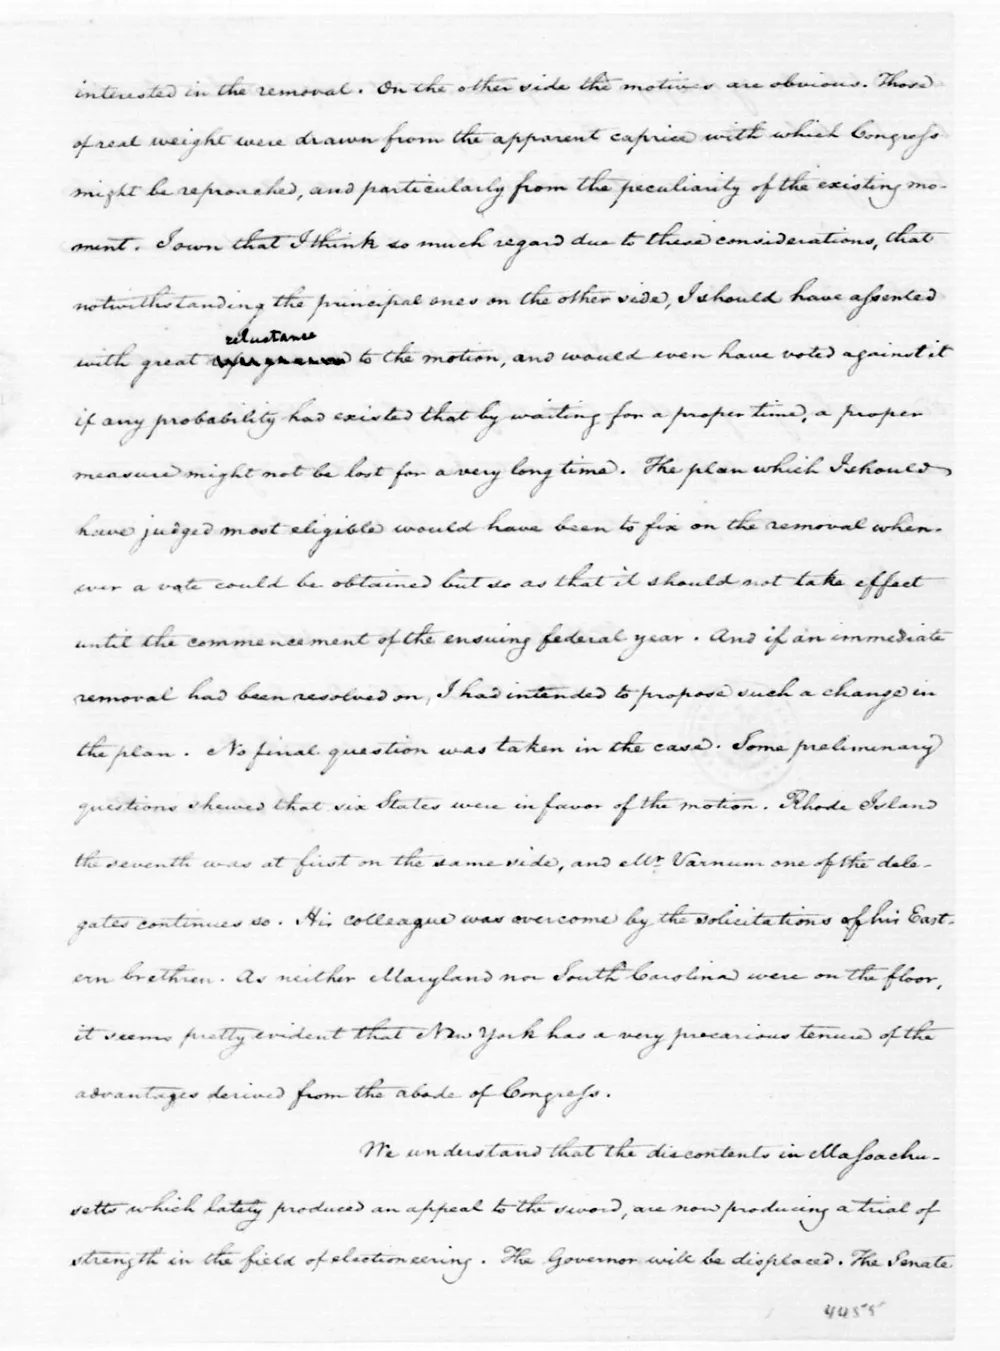 interested in the removal. On the other side the motives are obvious. Those
of real weight were drawn from the apparent caprice with which Congress
might be reproached, and particularly from the peculiarity of the existing mo-
ment. I own that I think so much regard due to these considerations, that
notwithstanding the principal ones on the other side, I should have assented
reluctance
with great to the motion, and would even have voted against it
if any probability had existed that by waiting for a proper time, a proper
measure might not be lost for a very long time. The plan which I should
have judged most eligible would have been to fix on the removal when-
ever a vote could be obtained but so as that it should not take effect
until the commencement of the ensuing federal year. And if an immediate
removal had been resolved on, I had intended to propose such a change in
the plan. No final question was taken in the case. Some preliminary
questions shewed that six States were in favor of the motion. Rhode Island
the seventh was at first on the same side, and Mr. Varnum one of the dele-
gates continues so. His colleague was overcome by the solicitations of his East-
ern brethren. As neither Maryland nor South Carolina were on the floor,
it seems pretty evident that New York has a very precarious tenure of the
advantages derived from the abode of Congress.
We understand that the discontents in Massachu-
setts which lately produced an appeal to the sword, are now producing a trial of
strength in the field of electioneering. The Governor will be displaced. The Senate
4455